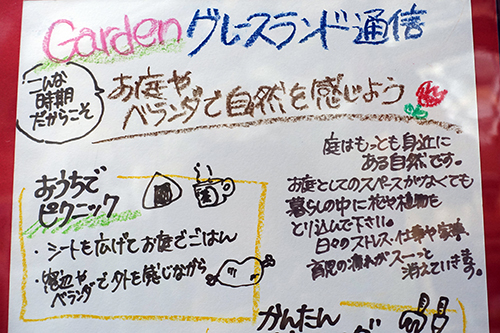 Garden グレースランド通信
こんな
時期
だからこそ
お庭や
ベランダで自然を感じよう
庭はもっとも身近に
ある自然です。
お庭としてのスペースがなくても
暮らしの中に花や植物を
とり込んで下さい。
日々のストレス・仕事や家事、
育児の疲れがスーッと
消えていきます。
おうちで
ピクニック
・シートを広げてお庭でごはん
・窓辺や
ベランダで外を感じながら
かんたん